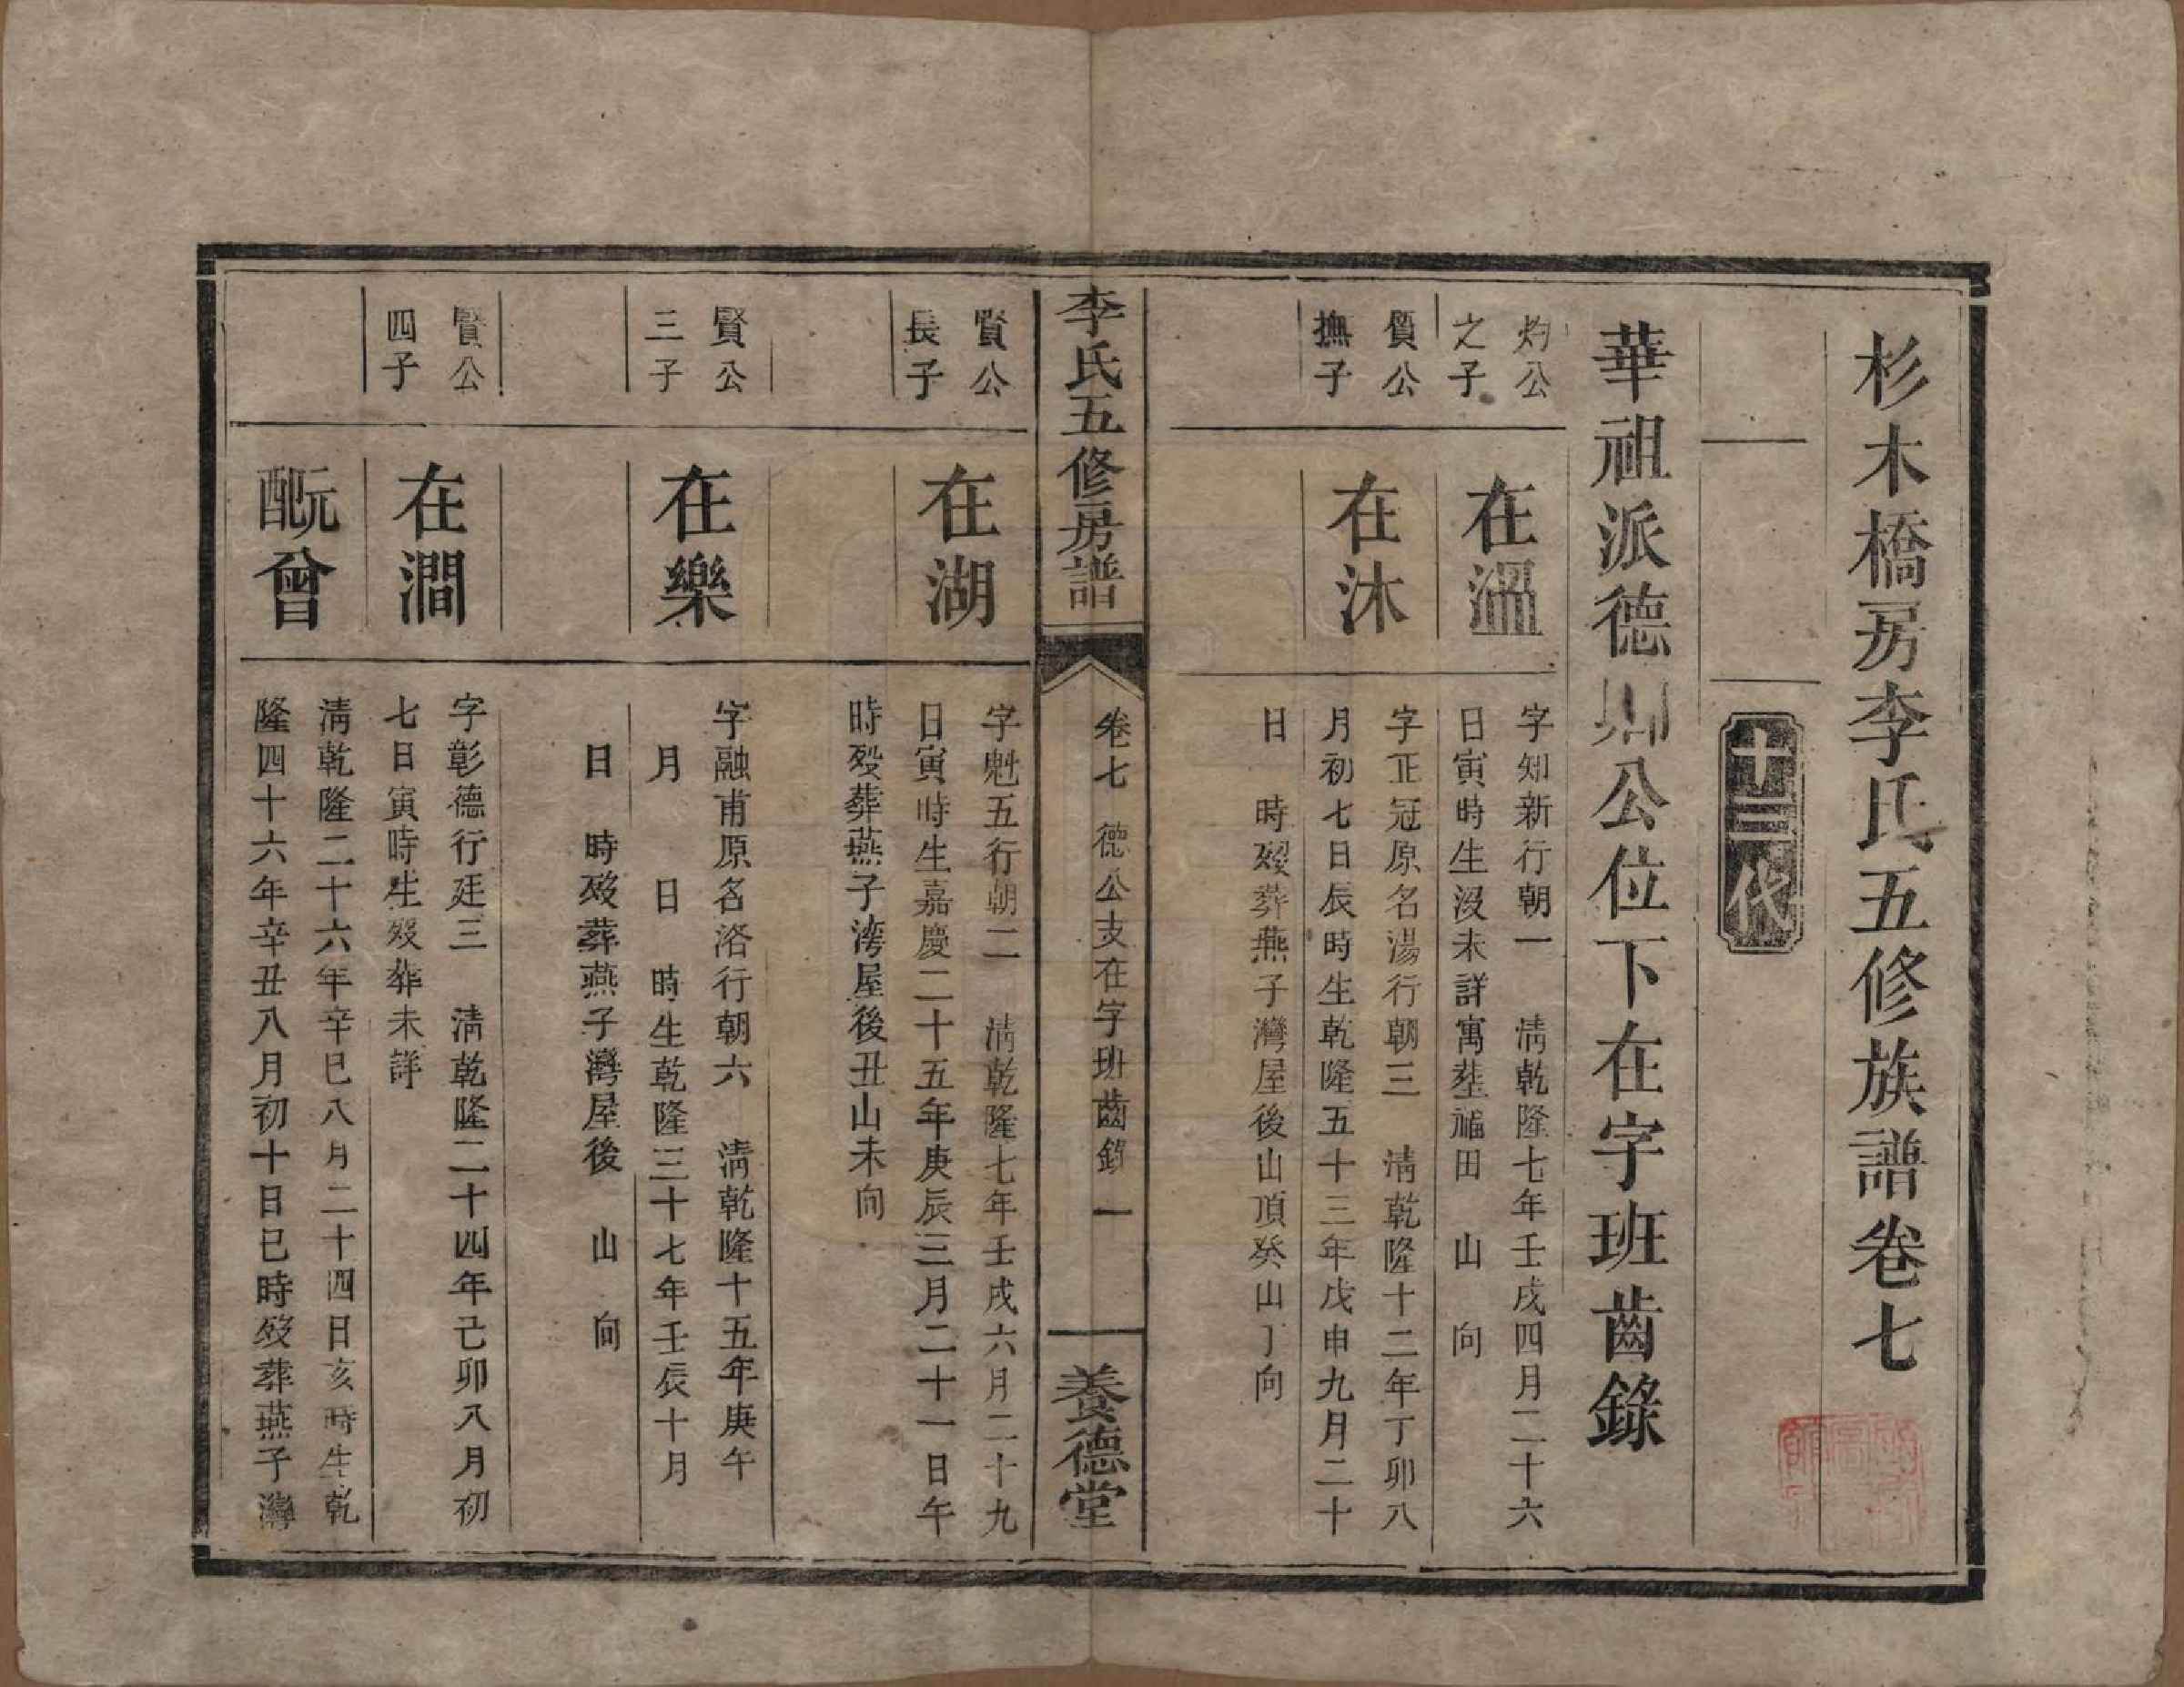 杉木橋房李氏五修族譜卷七
十三代
華祖派德圳公位下在字班齒錄
灼公
之子
在溫
字知新行朝一 清乾隆七年壬戌四月二十六
日寅時生沒未詳寓塟福田 山 向
質公
撫子
在沐
字正冠原名湯行朝三 清乾隆十二年丁卯八
月初七日辰時生乾隆五十三年戊申九月二十
日 時歿葬燕子灣屋後山頂癸山丁向
李氏五修房譜
卷七 德公支在字班齒錄 一
養德堂
賢公
長子
在湖
字魁五行朝二 清乾隆七年壬戌六月二十九
日寅時生嘉慶二十五年庚辰三月二十一日午
時歿葬燕子湾屋後丑山未向
賢公
三子
在樂
字融甫原名洛行朝六 清乾隆十五年庚午
月 日 時生乾隆三十七年壬辰十月
日 時歿葬燕子灣屋後 山 向
賢公
四子
在澗
字彰德行廷三 清乾隆二十四年己卯八月初
七日寅時生歿葬未詳
配阮曾
清乾隆二十六年辛巳八月二十四日亥時生乾
隆四十六年辛丑八月初十日巳時歿葬燕子灣